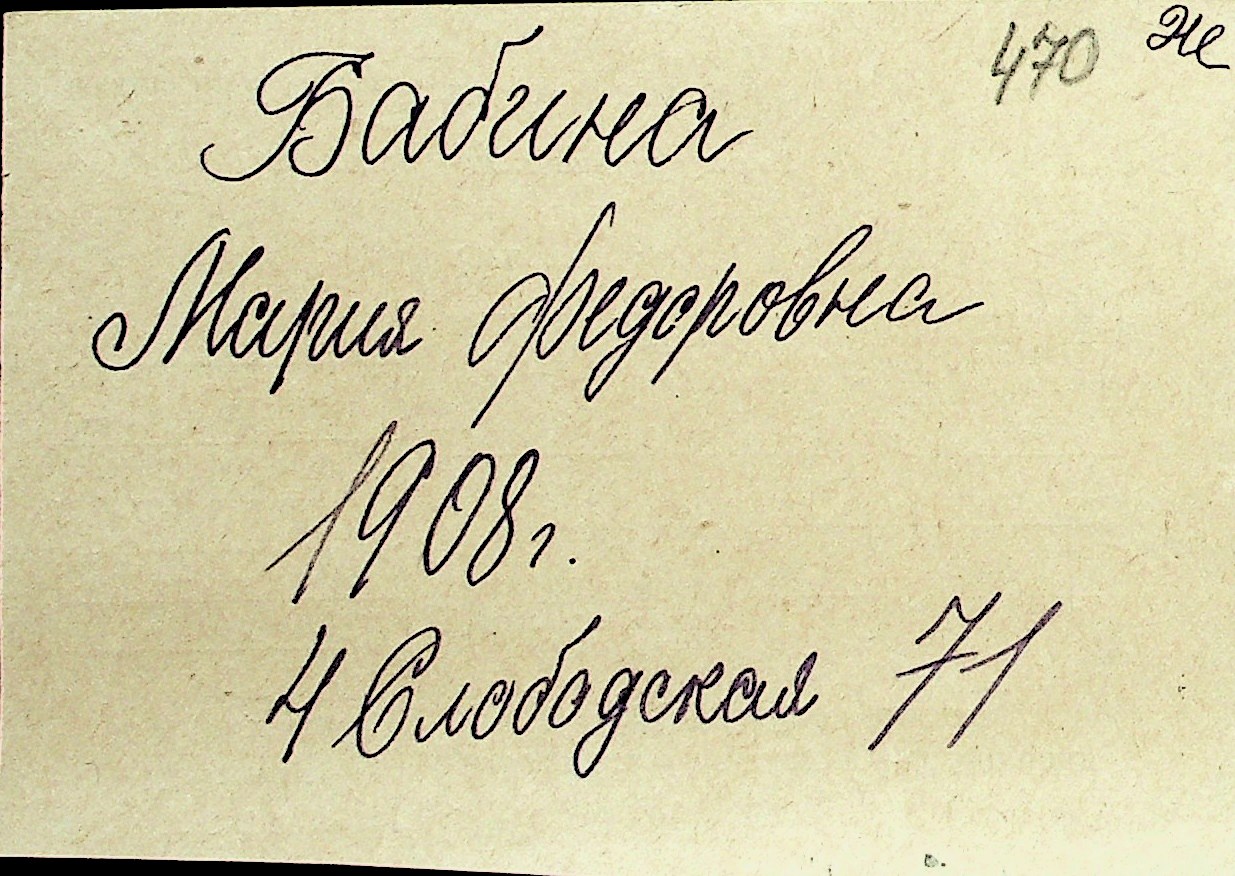 470 Же
Бабина
Мария Федоровна
1908г.
4 Слободская 71